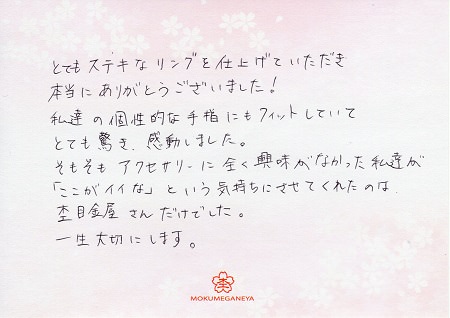 とてもステキなリングを仕上げていただき
本当にありがとうございました！
私達の個性的な手指にもフィットしていて
とても驚き、感動しました。
そもそもアクセサリーに全く興味がなかった私達が
「ここがイイな」という気持ちにさせてくれたのは、
杢目金屋さんだけでした。
一生大切にします。
杢
MOKUMEGANEYA